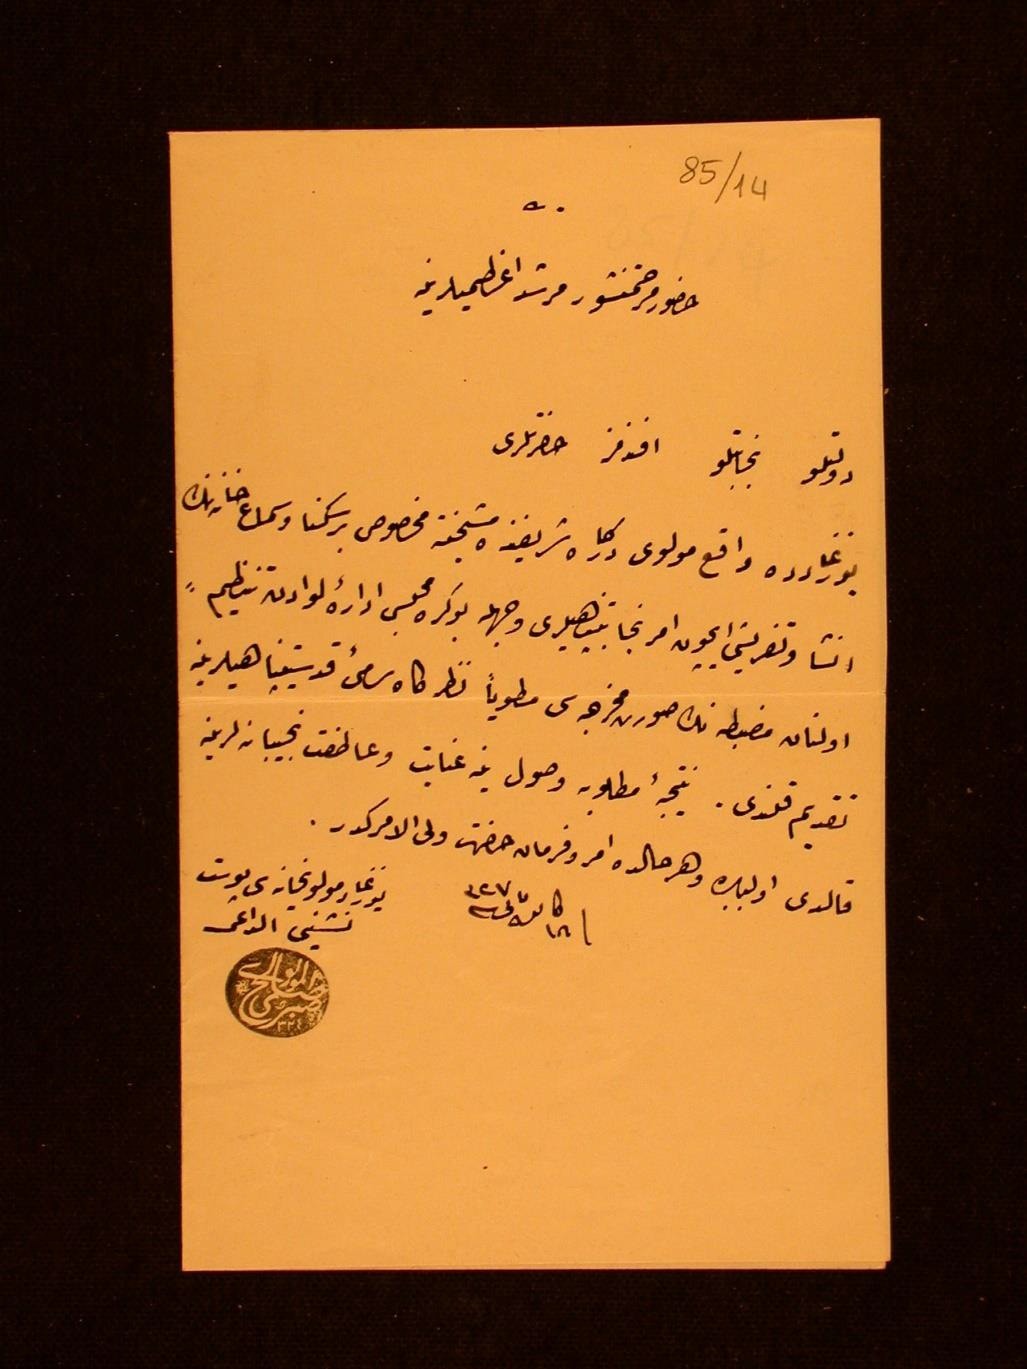 85/14
حضور مرحمتنشور مرشد اعظمیلرینه
دولتلو نجابتلو افندمز حضرتلری
یوزغادده واقع مولوی درکاه شریفنده مشیخته مخصوص بر سکنا و سماع خانه نك
انشا و تفریشی ایچون امر نجابتپناهیلری وجهله بوکره مجلس ادارۀ لوادن تنظیم
اولنان مضبطه نك صورت مخرجه سی مطویاً نظرکاه سامئ قدسیتپناهیلرینه
تقدیم قلندی. نتیجۀ مطلوبه وصول ینه عنایت و عاطفت نجیبانه لرینه
قالدی اولبابده و هر حالده امر و فرمان حضرت ولی الامرکدر.
یوزغاد مولویخانه سی پوست
نشینی الداعی